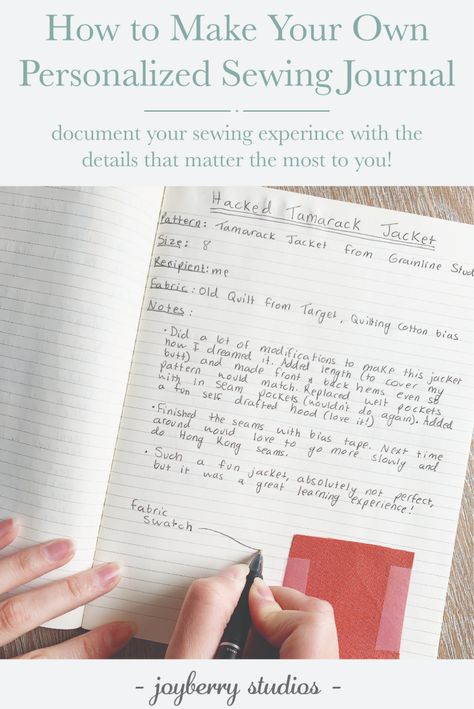 How to Make Your Own
Personalized Sewing Journal
document your sewing experince with the
details that matter the most to you!
Hacked Tamarack Jacket
Pattern: Tamarack Jacket from Grainline Stud
Size: 8
Recipient: me
Fabric: Old Quilt from Target, Quilting Cotton bias
Notes:
• Did a lot of modifications to make this jacket
how I dreamed it. Added length (to cover my
butt) and made front & back hems even so
pattern would match. Replaced welt pockets
with in seam pockets (wouldn't do again). Added
a fun self drafted hood (love it!)
• Finished the seams with bias tape. Next time
around would love to go more slowly and
do Hong Kong seams.
• Such a fun jacket, absolutely not perfect,
but it was a great learning experience!
Fabric
Swatch
- joyberry studios -